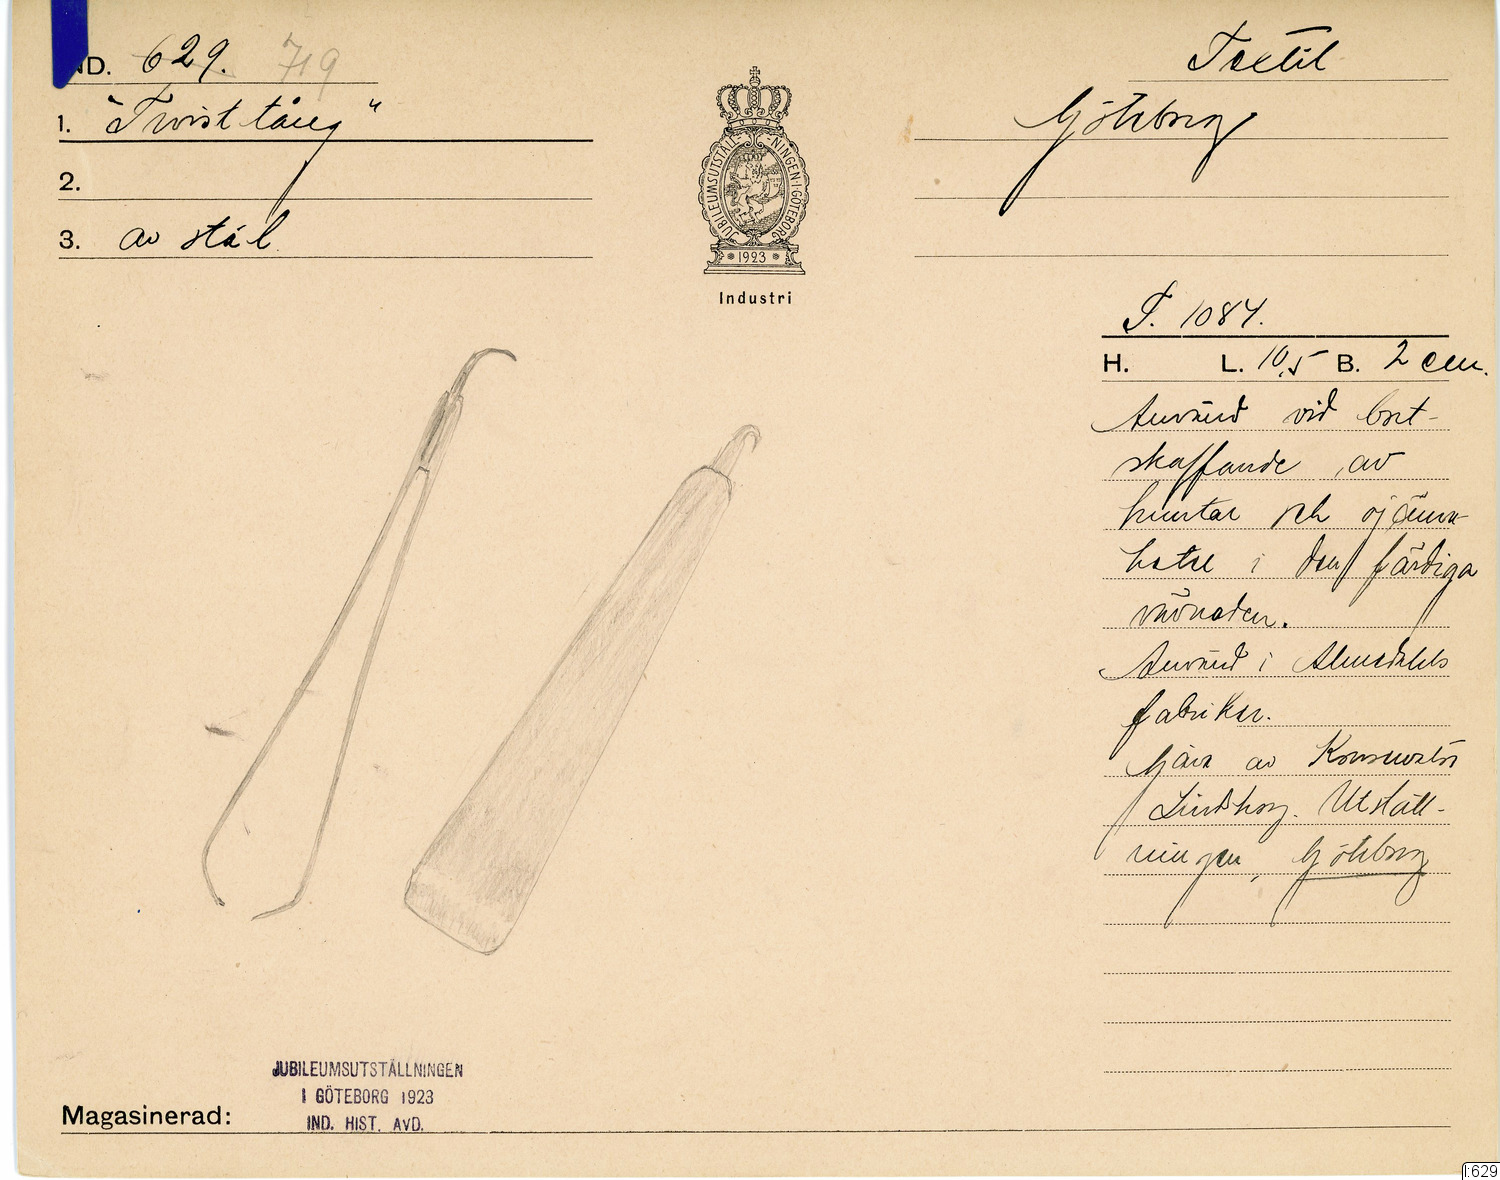 IND. 629. 719
1. "Twisttång"
2.
3. av stål.
JUBILEUMSUTSTÄLLNINGEN I GÖTEBORG
1923
Industri
Textil
Göteborg
T. 1084.
H. L. 10,5 B. 2 cm.
Använd vid bort-
skaffande av
knutar och ojämn-
heter i den färdiga
vävnaden.
Använd i Almedahls
fabriker.
Gåva av Konservator
Utställ-
ningen, Göteborg
JUBILEUMSUTSTÄLLNINGEN
I GÖTEBORG 1923
IND. HIST. AVD.
Magasinerad:
I:629